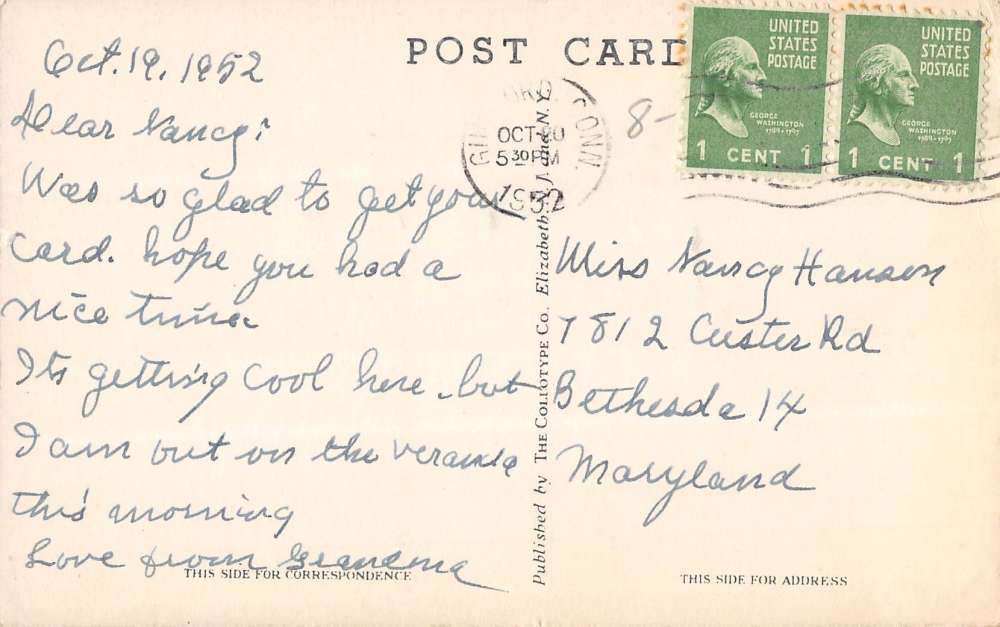 POST CARD
Oct. 19, 1952
Dear Nancy:
Was so glad to get your
card. hope you had a
nice time.
Its getting cool here - but
I am out on the veranda
this morning
Love from Grandma
THIS SIDE FOR CORRESPONDENCE
Published by THE COLLOTYPE CO. Elizabeth, N.J. and N.Y.
CONN.
OCT 20
5 30 PM
1952
8-
UNITED
STATES
POSTAGE
GEORGE
WASHINGTON
1789-1797
1 CENT 1
UNITED
STATES
POSTAGE
GEORGE
WASHINGTON
1789-1797
1 CENT 1
Miss Nancy Hansen
7812 Custer Rd
Bethesda 14
Maryland
THIS SIDE FOR ADDRESS